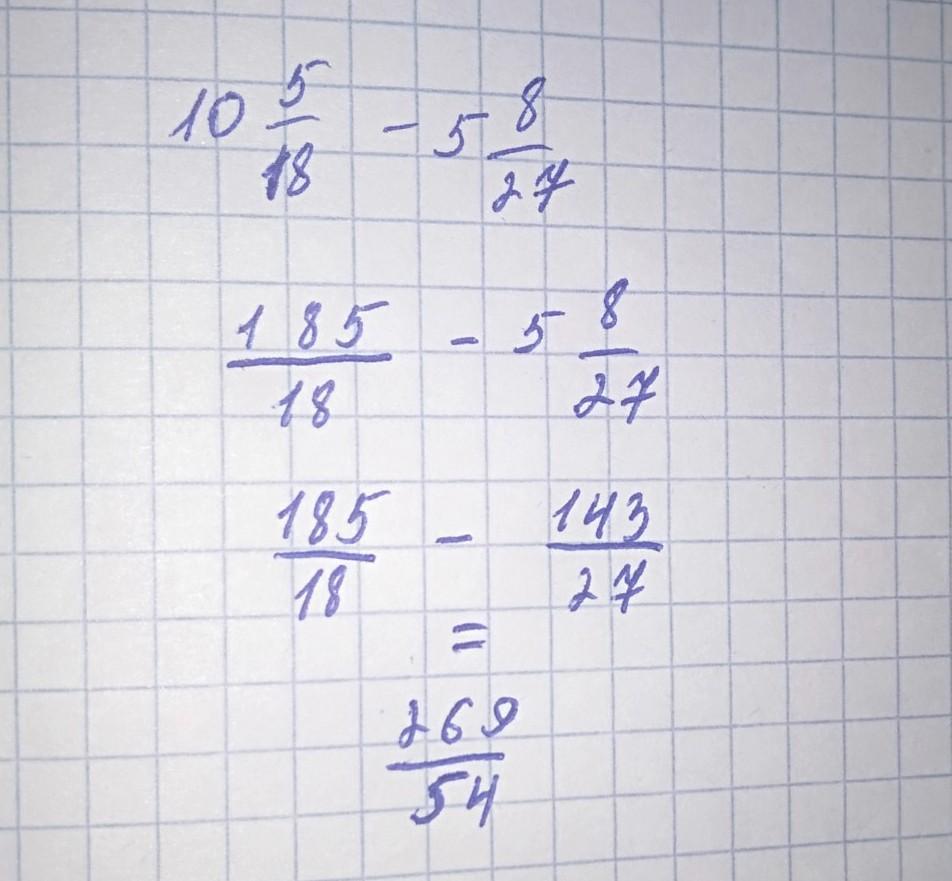 10 5/18 - 5 8/27
185/18 - 5 8/27
185/18 - 143/27
=
269/54